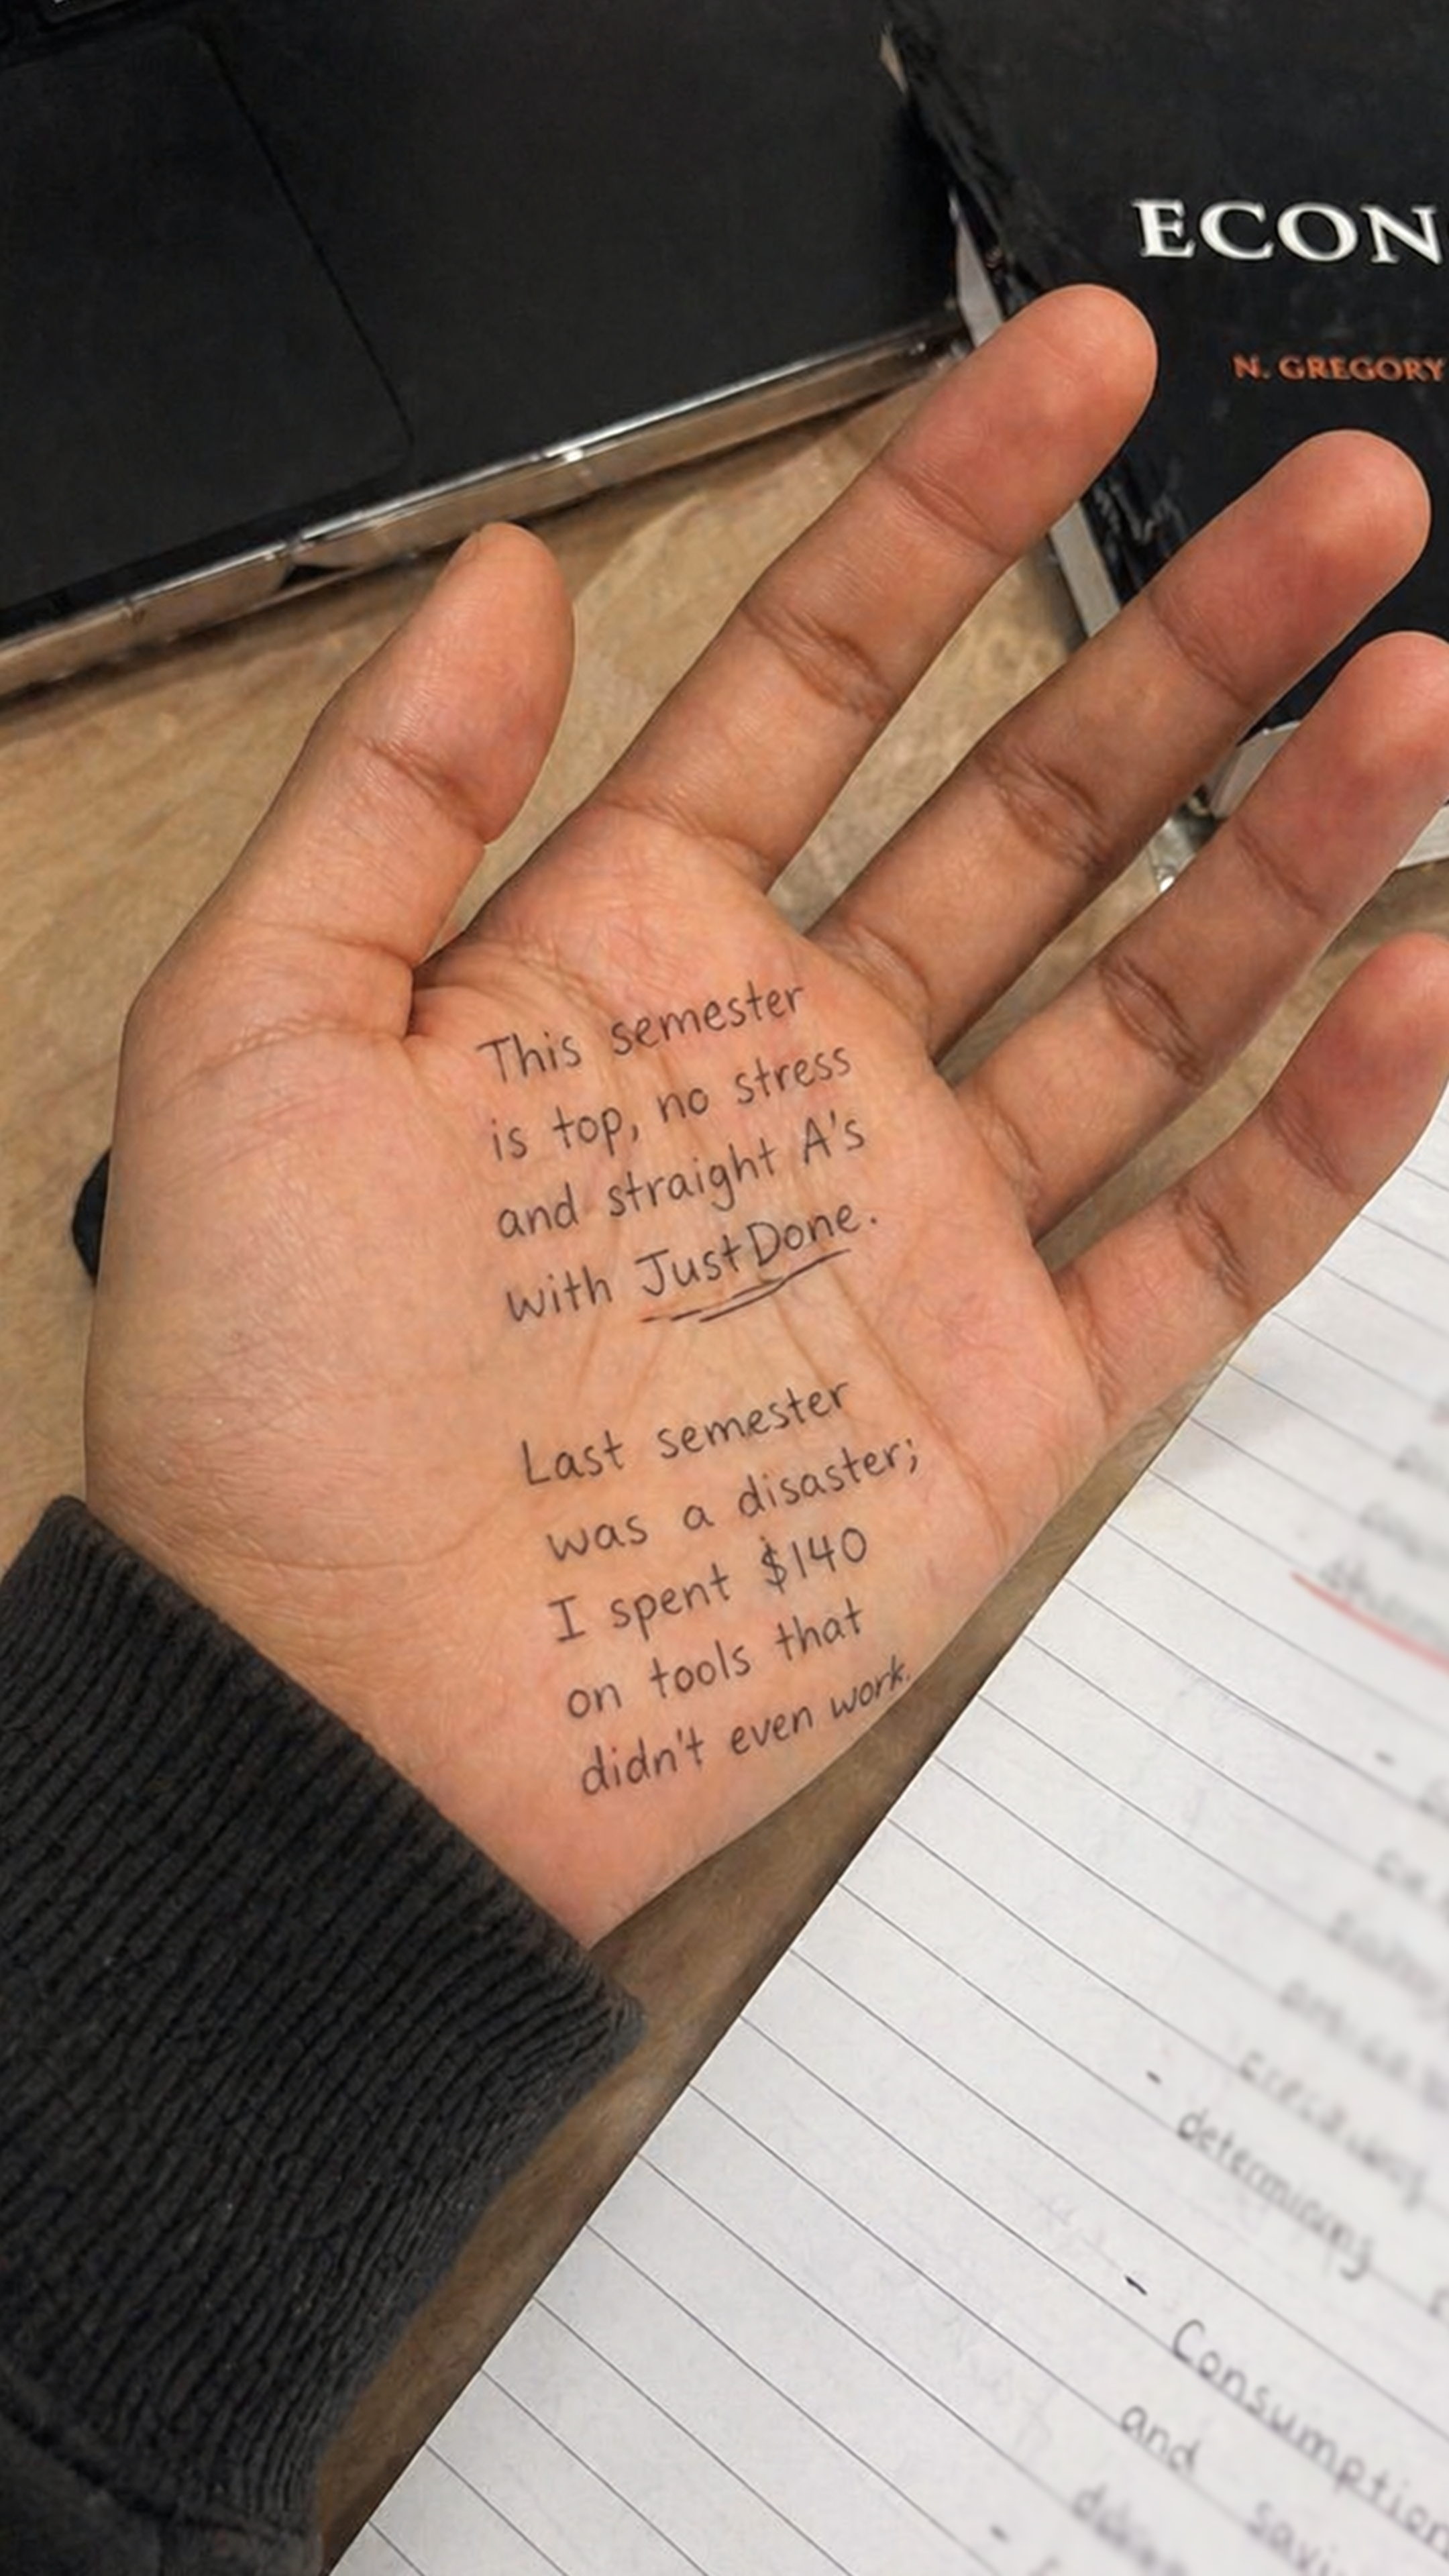 ECON
N. GREGORY
This semester
is top, no stress
and straight A's
with JustDone.
Last semester
was a disaster;
I spent $140
on tools that
didn't even work.
- determining
- Consumption
and savi